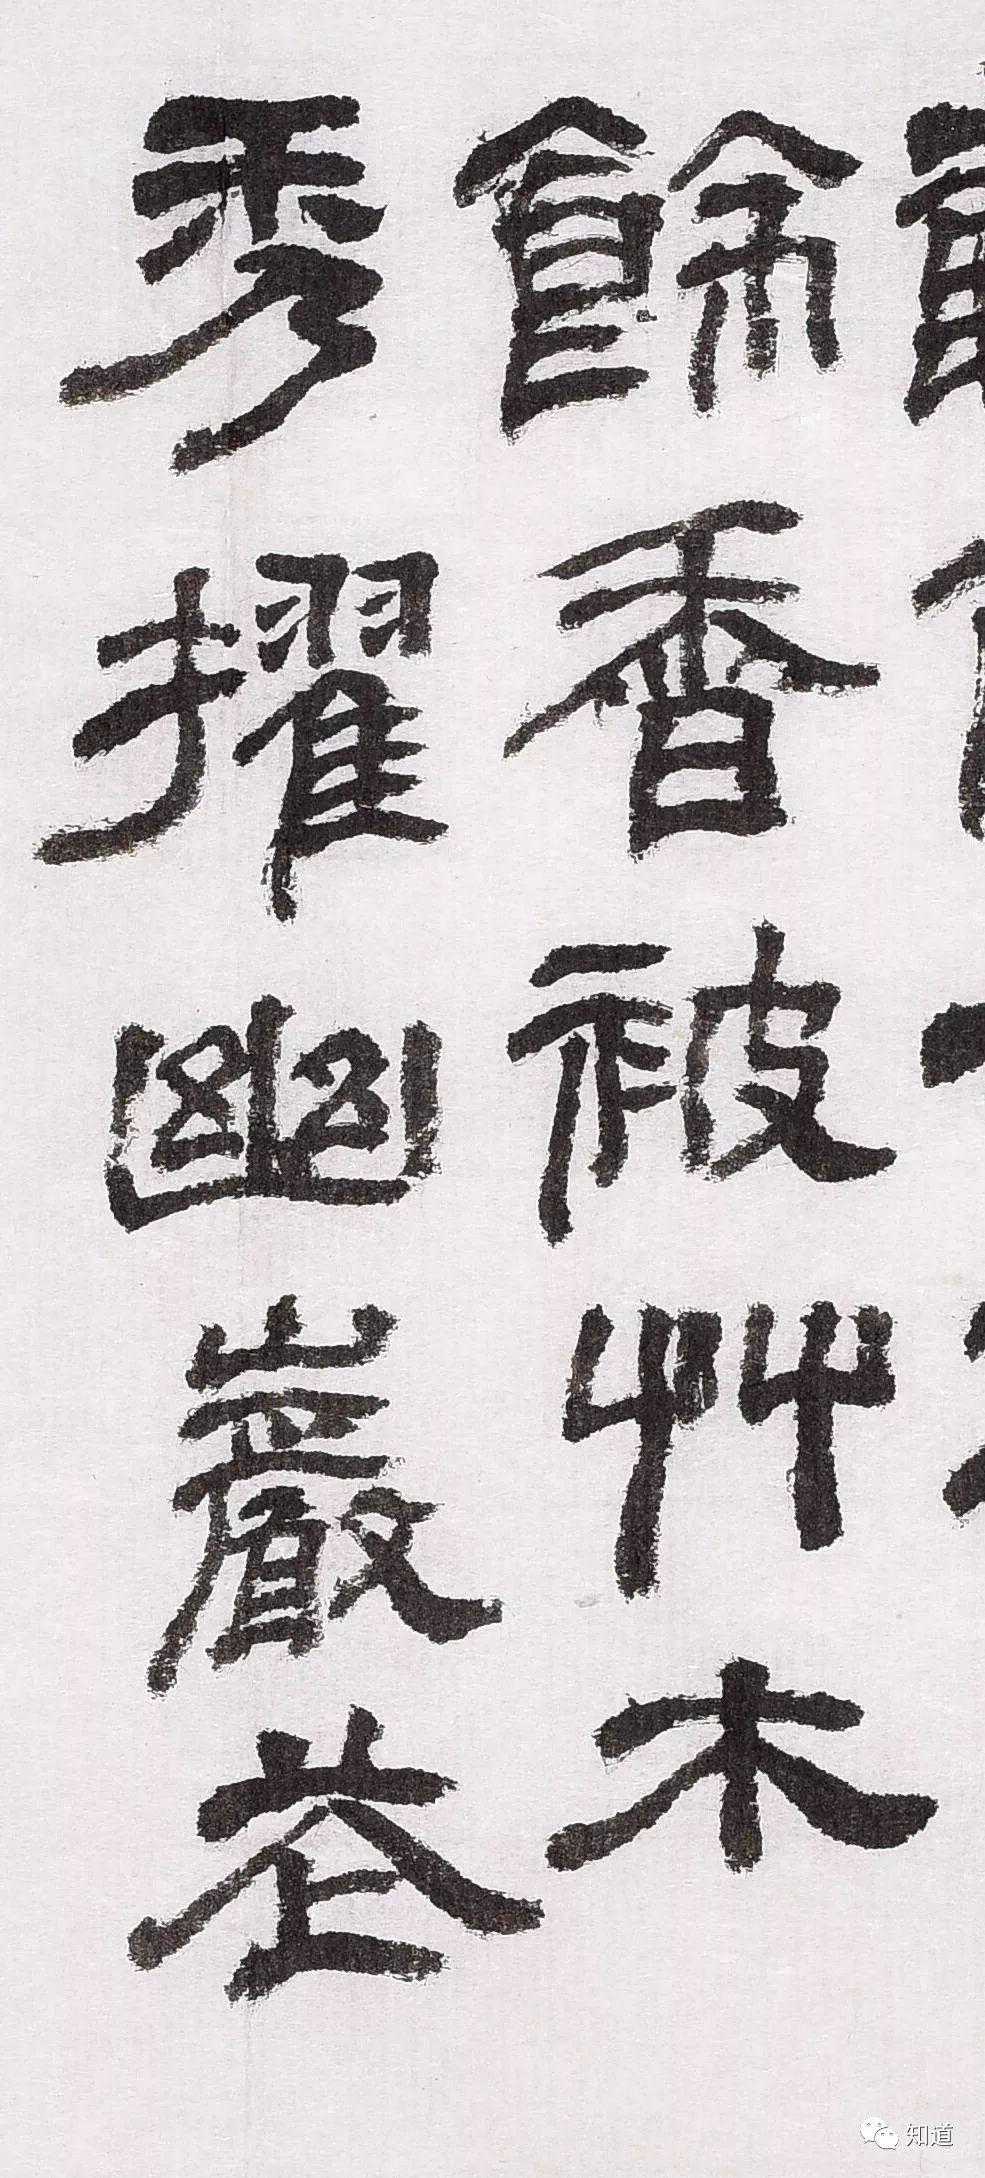 餘香被艸木
秀擢幽巖
知道